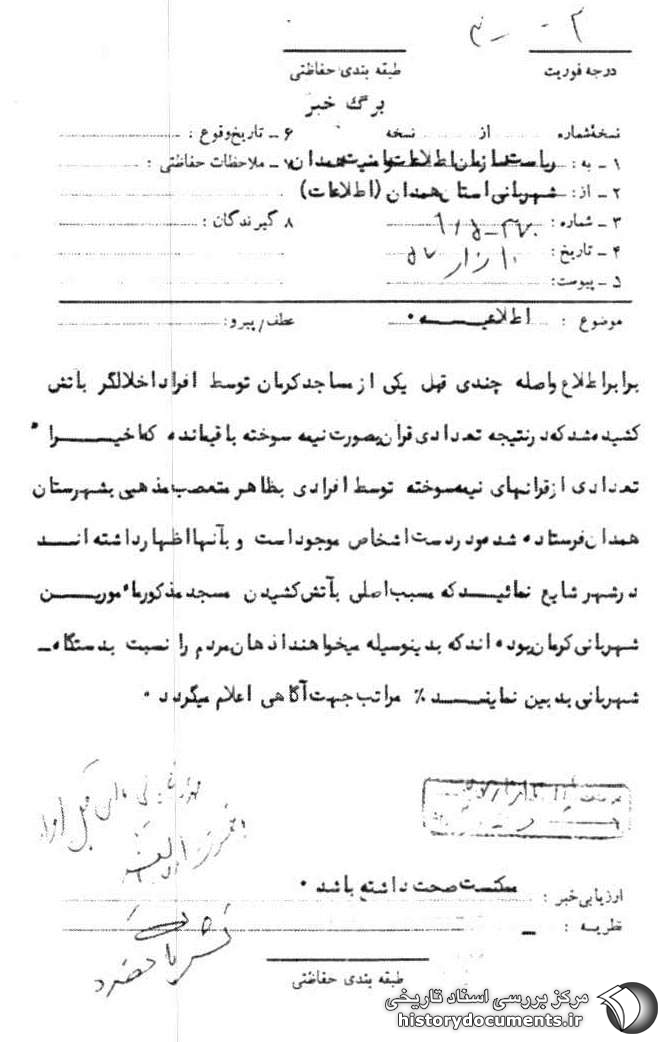 درجه فوریت
طبقه بندی حفاظتی
برگ خبر
نسخه‌شماره از نسخه
۶ ـ تاریخ‌وقوع :
۱ ـ به : ریاست‌سازمان‌اطلاعات‌وامنیت‌همدان
۷ ـ ملاحظات حفاظتی :
۲ ـ از : شهربانی‌استان‌همدان (اطلاعات)
۳ ـ شماره :
۸ گیرندگان :
۴ ـ تاریخ :
۵ ـ پیوست:
موضوع : اطلاعیـــه ۰
عطف/پیرو:
برابراطلاع واصله چندی قبل یکی ازمساجدکرمان توسط افراداخلالگر بآتش
کشیده‌شدکه‌درنتیجه تعدادی‌قرآن‌بصورت‌نیمه سوخته باقیمانده که‌اخیـــرا "
تعدادی ازقرانهای نیمه‌سوخته توسط افرادی بظاهر متعصب‌مذهبی بشهرستان
همدان‌فرستاده شده‌ودردست‌اشخاص موجوداست وبآنهااظهارداشته‌انـــد
درشهر شایع نمائیـدکه مسبب‌اصلی بآتش‌کشیدن مسجدمذکورمأموریـن
شهربانی‌کرمان‌بوده‌اندکه بدینوسیله میخواهنداذهان‌مردم را نسبت بدستگاه‌ـ
شهربانی بدبین نماینـــد ٪ مراتب جهت‌آگاهی اعلام میگردد ۰
ارزیابی‌خبر : ممکنست صحت داشته باشد ۰
نظریه : ـ
طبقه بندی حفاظتی
مرکز بررسی اسناد تاریخی
historydocuments.ir